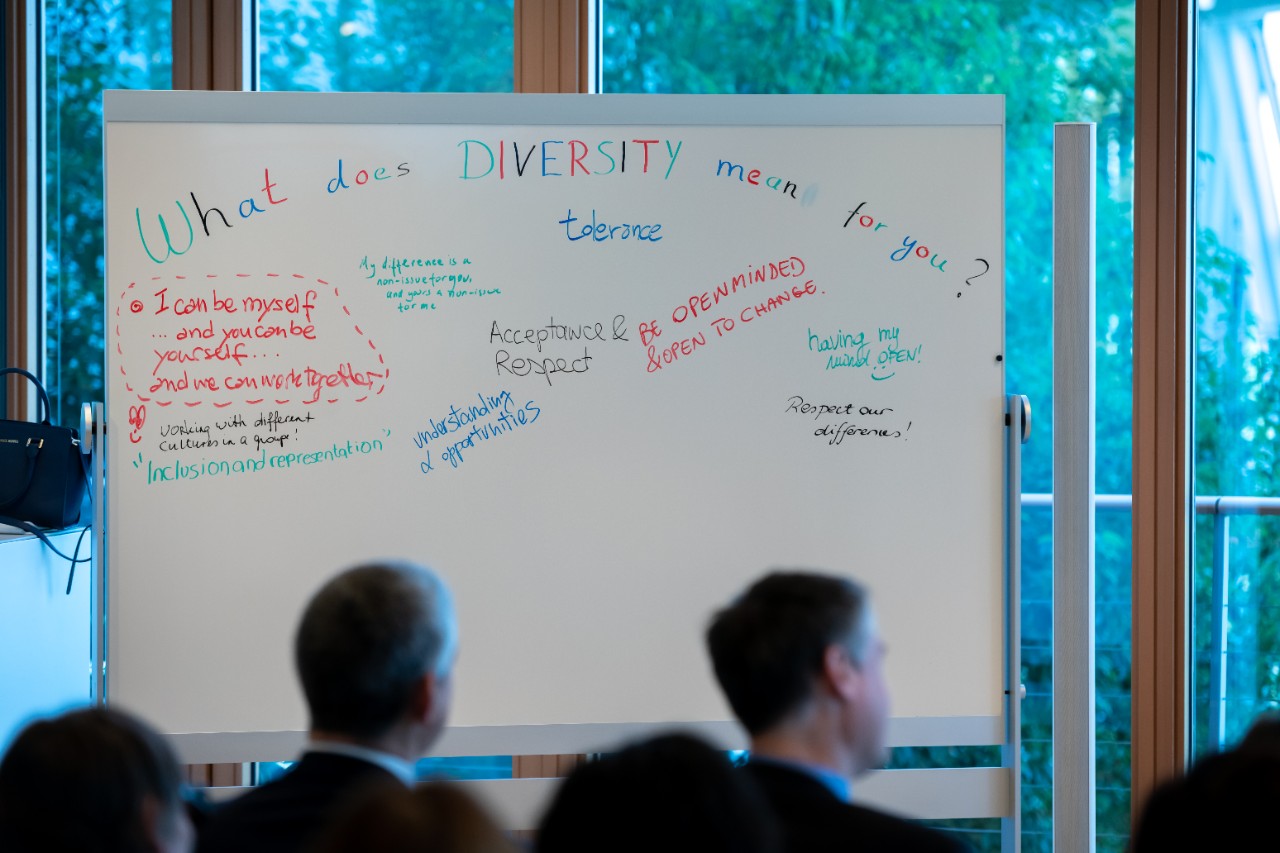 What does DIVERSITY mean for you?
tolerance
My difference is a
non-issue for you,
and yours a non-issue
for me
I can be myself
... and you can be
yourself....
and we can work together!
Acceptance &
Respect
BE OPEN MINDED
& OPEN TO CHANGE.
having my
mind OPEN!
working with different
cultures in a group!
"Inclusion and representation"
understanding
& opportunities
Respect our
differences!